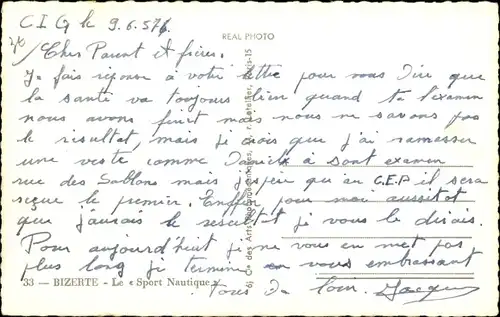 C I G le 9.6.57.
REAL PHOTO
Cher Parent et frères.
Je fais réponse à votre lettre pour vous dire que
la santé va toujours bien quand à l'examen
nous avons finit mais nous ne savons pas
le résultat, mais je crois que j'ai ramasser
une veste comme Daniel à sont examen
rue des Sablons mais j'espère qu'au C.E.P il sera
reçue le premier. Enffin pour moi aussitot
que j'aurais le resultat je vous le dirais.
Pour aujourd'huit je ne vous en met pas
plus long je termine en vous embrassant
33 — BIZERTE - Le « Sport Nautique »
Tous de loin. Jacques